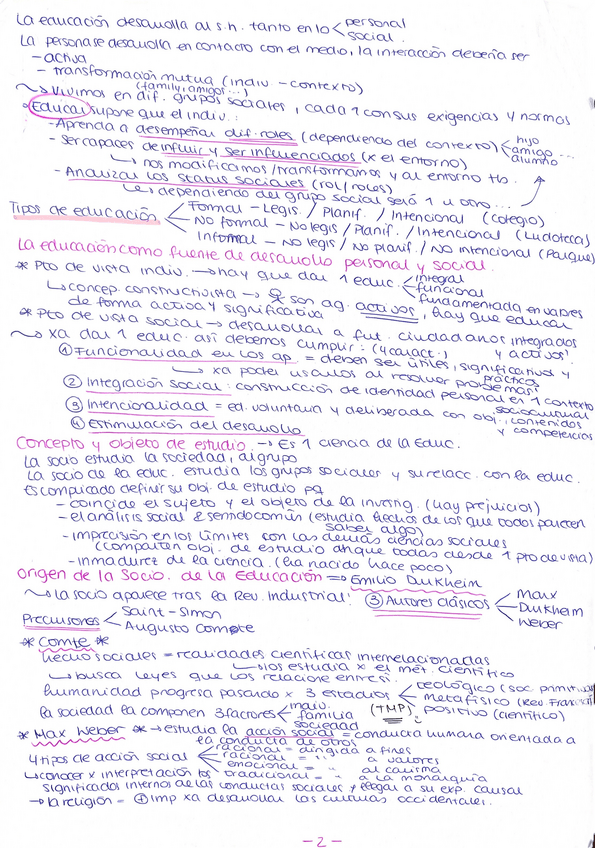 La educación desarrolla al s.h. tanto en lo < personal
social.
La persona se desarrolla en contacto con el medio, la interacción debería ser
- activa
- transformación mutua (indiv - contexto)
(family, amigos...)
~> Vivimos en dif. grupos sociales, cada 1 con sus exigencias y normas
Educar supone que el indiv.:
- Aprenda a desempeñar dif. roles (dependiendo del contexto) < hijo
amigo ...
alumno
- Ser capaces de influir y ser influenciados (x el entorno)
↳ nos modificamos/transformamos y al entorno tb.
- Analizar los status sociales (rol/roles)
↳ dependiendo del grupo social será 1 u otro...
Tipos de educación < Formal - Legis. / Planif. / Intencional (colegio)
No formal - No legis / Planif. / Intencional (Ludoteca)
Informal - No legis / No planif. / NO intencional (Parque)
La educación como fuente de desarrollo personal y social.
* Pto de vista indiv. → hay que dar 1 educ. < integral
funcional
fundamentada en valores
↳ concep. constructivista → son ag. activos, hay que educar
de forma activa y significativa
* Pto de vista social → desarrollar a fut. ciudadanos integrados
y activos.
~> xa dar 1 educ. así debemos cumplir: (4 caract.)
① Funcionalidad en los ap. = deben ser útiles, significativos y
prácticos
↳ xa poder usarlos al resolver problemas
② Integración social: construcción de identidad personal en 1 contexto
sociocultural
③ Intencionalidad = ed. voluntaria y deliberada con obj., contenidos
y competencias
④ Estimulación del desarrollo
Concepto y objeto de estudio → Es 1 ciencia de la Educ.
La socio estudia la sociedad, al grupo
La socio de la educ. estudia los grupos sociales y su relacc. con la educ.
Es complicado definir su obj. de estudio pq
- coincide el sujeto y el objeto de la investig. (hay prejuicios)
- el análisis social & sentido común (estudia hechos de los que todos parecen
saber algo)
- imprecisión en los límites con las demás ciencias sociales
(comparten obj. de estudio aunque todas desde 1 pto de vista)
- inmadurez de la ciencia. (ha nacido hace poco)
Origen de la Socio. de la Educación => Emilio Durkheim
~> la socio aparece tras la Rev. Industrial! ③ Autores clásicos < Marx
Durkheim
Weber
Precursores < Saint-Simon
Augusto Compte
* Comte *
hecho sociales = realidades científicas interrelacionadas
↳ los estudia x el mét. científico
↳ busca leyes que los relacione entre si.
humanidad progresa pasando x 3 estadios < teológico (soc. primitivas)
metafísico (Rev. Francesa)
(TMP) positivo (científico)
la sociedad la componen 3 factores < indiv.
familia
sociedad
* Max Weber * → estudia la acción social = conducta humana orientada a
la conducta de otros
4 tipos de acción social < racional = dirigida a fines
racional = " a valores
emocional = " al carisma
tradicional = " a la monarquía
↳ conocer x interpretación los
significados internos de las conductas sociales y llegar a su exp. causal
→ la religión = ① imp xa desarrollar las culturas occidentales.
- 2 -